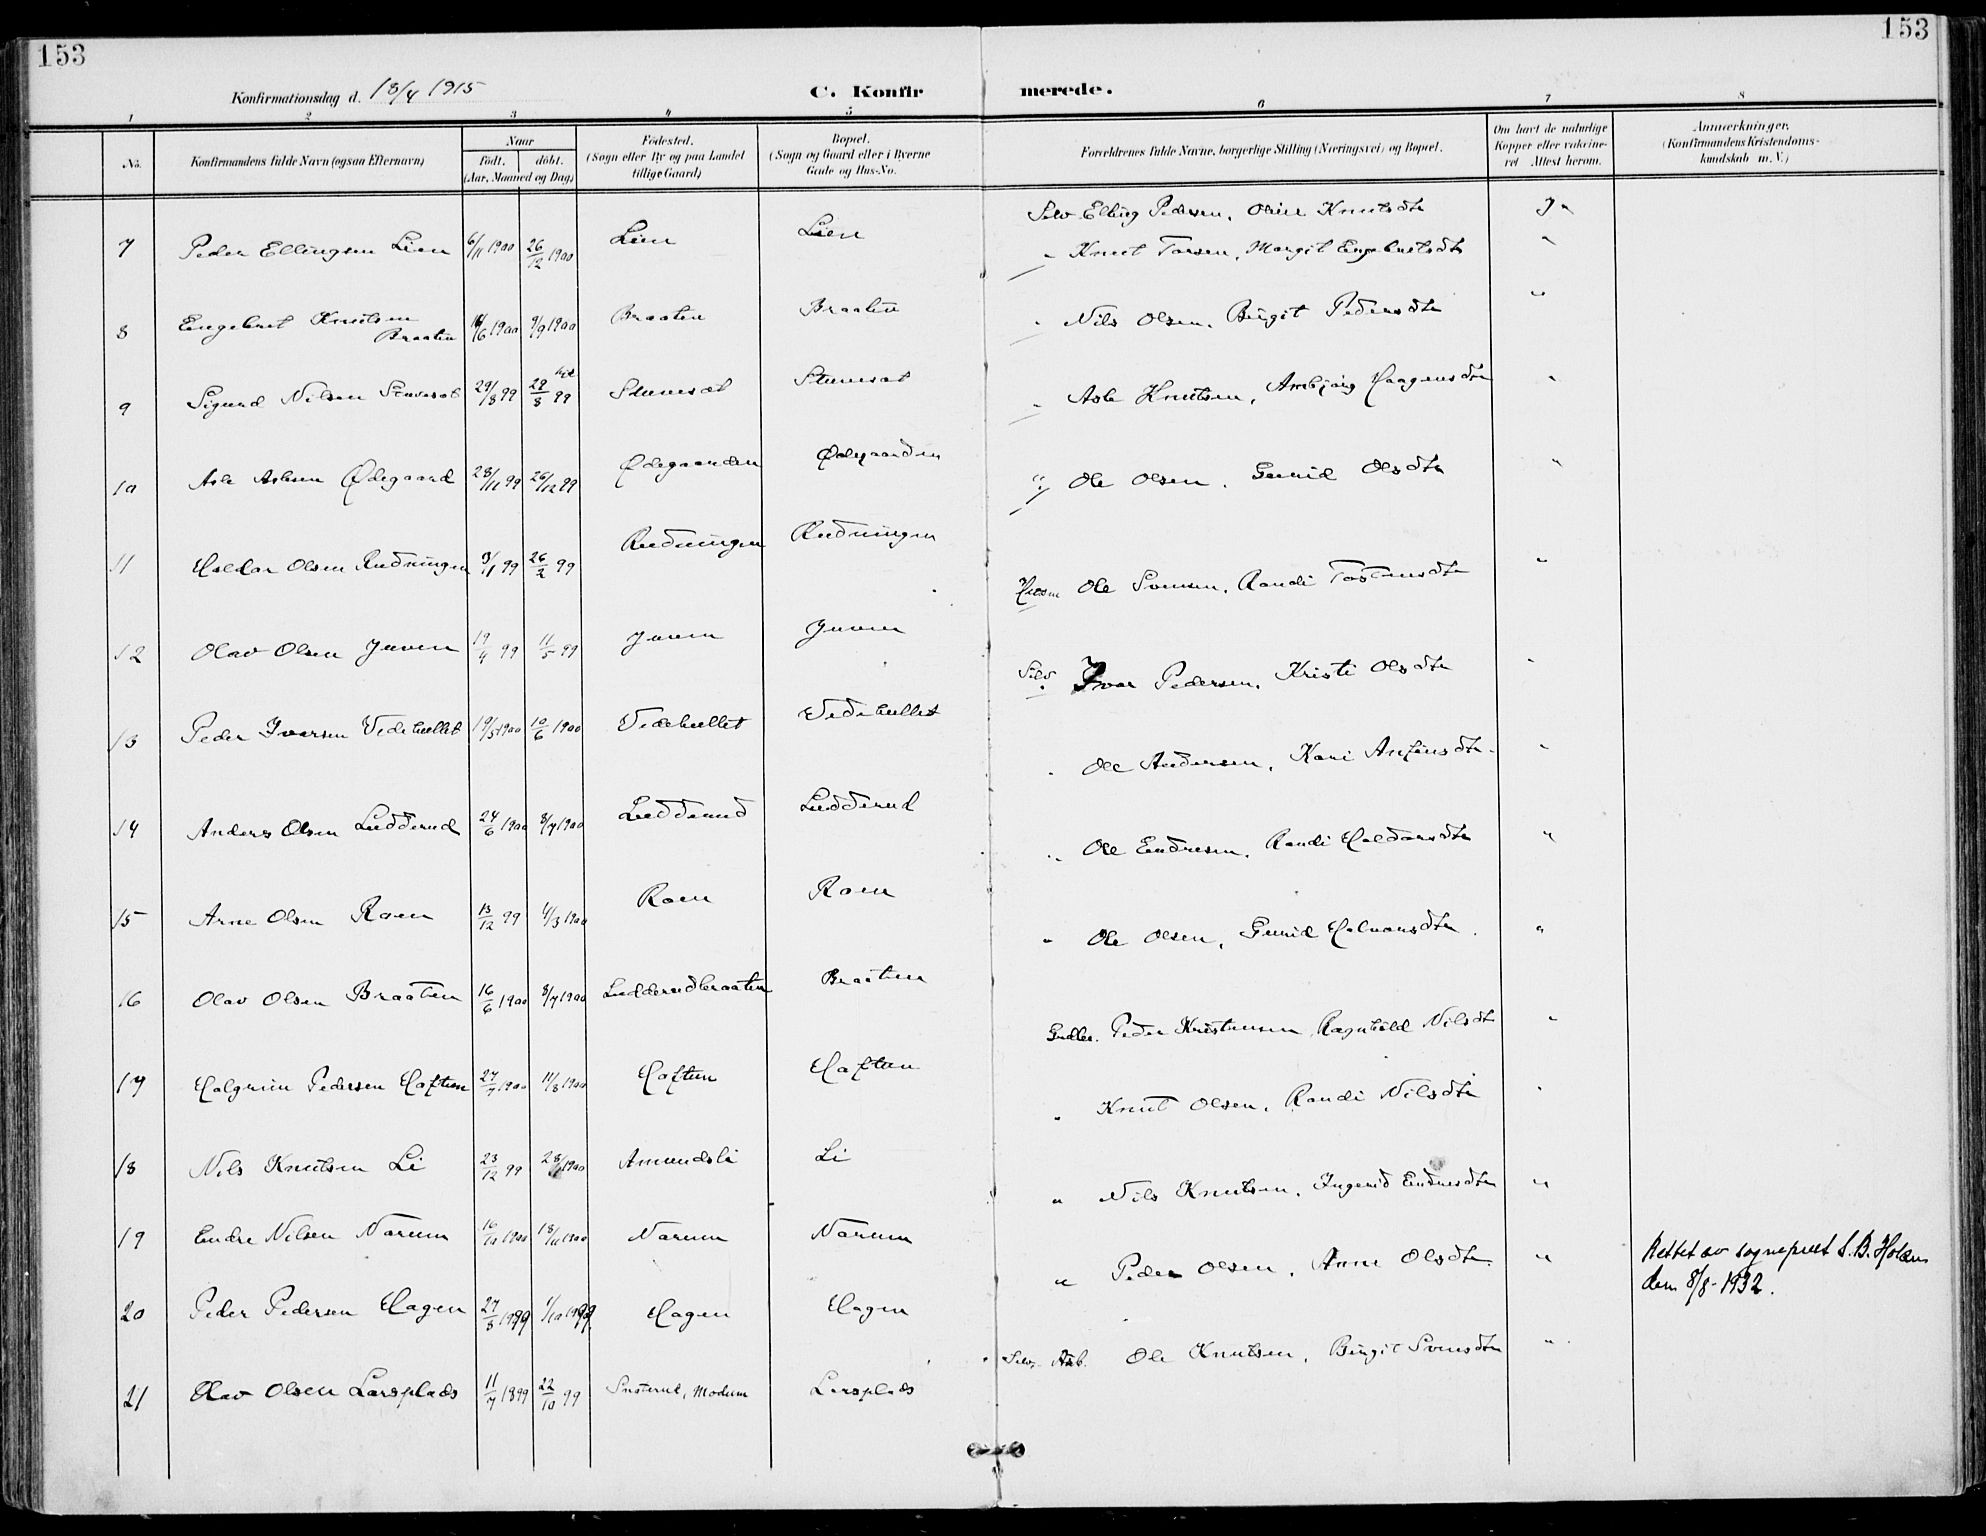 153
153
Konfirmationsdag d. 18/4 1915
C. Konfir
merede.
1 2 3 4 5 6 7 8
No.
Konfirmandens fulde Navn (ogsaa Efternavn)
Naar
født. døbt.
(Aar, Maaned og Dag)
Fødested.
(Sogn eller By og paa Landet
tillige Gaard)
Bopæl.
(Sogn og Gaard eller i Byerne
Gade og Hus-No.
Forældrenes fulde Navne, borgerlige Stilling (Næringsvei) og Bopæl.
Om havt de naturlige
Kopper eller vakcine-
ret Attest herom.
Anmærkninger.
(Konfirmandens Kristendoms-
kundskab m. V.)
Selv Elling Pedersen, Knutsdtr
7 Peder Ellingsen Lien 6/11 1900 26/12 1900 Lien Lien
" Knut Torsen, Margit Engebretsdtr "
8 Engebret Knutsen 9/9 1900 Braaten Braaten
Braaten
" Nils Olsen, Birgit Pedersdtr "
9 Sigurd Nilsen 29/8 99
" Asle Knutsen, Haagensdtr "
10 Asle Aslesen Ødegaard 28/11 99 26/12 99 Ødegaarden Ødegaarden
" Ole Olsen, Gunild Olsdtr "
11 Haldor Olsen Rudningen 9/1 99 26/2 99 Rudningen Rudningen
Ole Svensen, Randi Tostensdtr "
12 Olav Olsen Juven 19/4 99 11/5 99 Juven Juven
Selv Ivar Pedersen, Kristi Olsdtr "
13 Peder Ivarsen Vedehullet 19/5 1900 10/6 1900 Vedehullet Vedehullet
" Ole Andersen, Kari Anfinsdtr. "
14 Anders Olsen Ludderud 24/6 1900 8/7 1900 Ludderud Ludderud
" Ole Endresen, Randi Haldorsdtr "
15 Arne Olsen Roen 13/12 99 4/3 1900 Roen Roen
" Ole Olsen, Gunild Halvorsdtr. "
16 Olav Olsen Braaten 16/6 1900 8/7 1900 Ludderudbraaten Braaten
Gudbr. Peder Kristensen, Ragnhild Nilsdtr "
17 Halgrim Pedersen Haftun 27/7 1900 11/8 1900 Haftun Haftun
" Knut Olsen, Randi Nilsdtr "
18 Nils Knutsen Li 23/12 99 Amundsli Li
" Nils Knutsen, Ingerid Endresdtr "
19 Endre Nilsen Narum 16/10 1900 18/11 1900 Narum Narum
" Peder Olsen, Anne Olsdtr. "
Rettet av sogneprest S. B. Holden
den 8/8-1932.
20 Peder Pedersen Hagen 27/8 1899 1/10 1899. Hagen Hagen
Selv. Arb. Ole Knutsen, Birgit Svensdtr "
21 Olav Olsen Larsplads 11/7 1899 22/10 99 Modum Larsplads